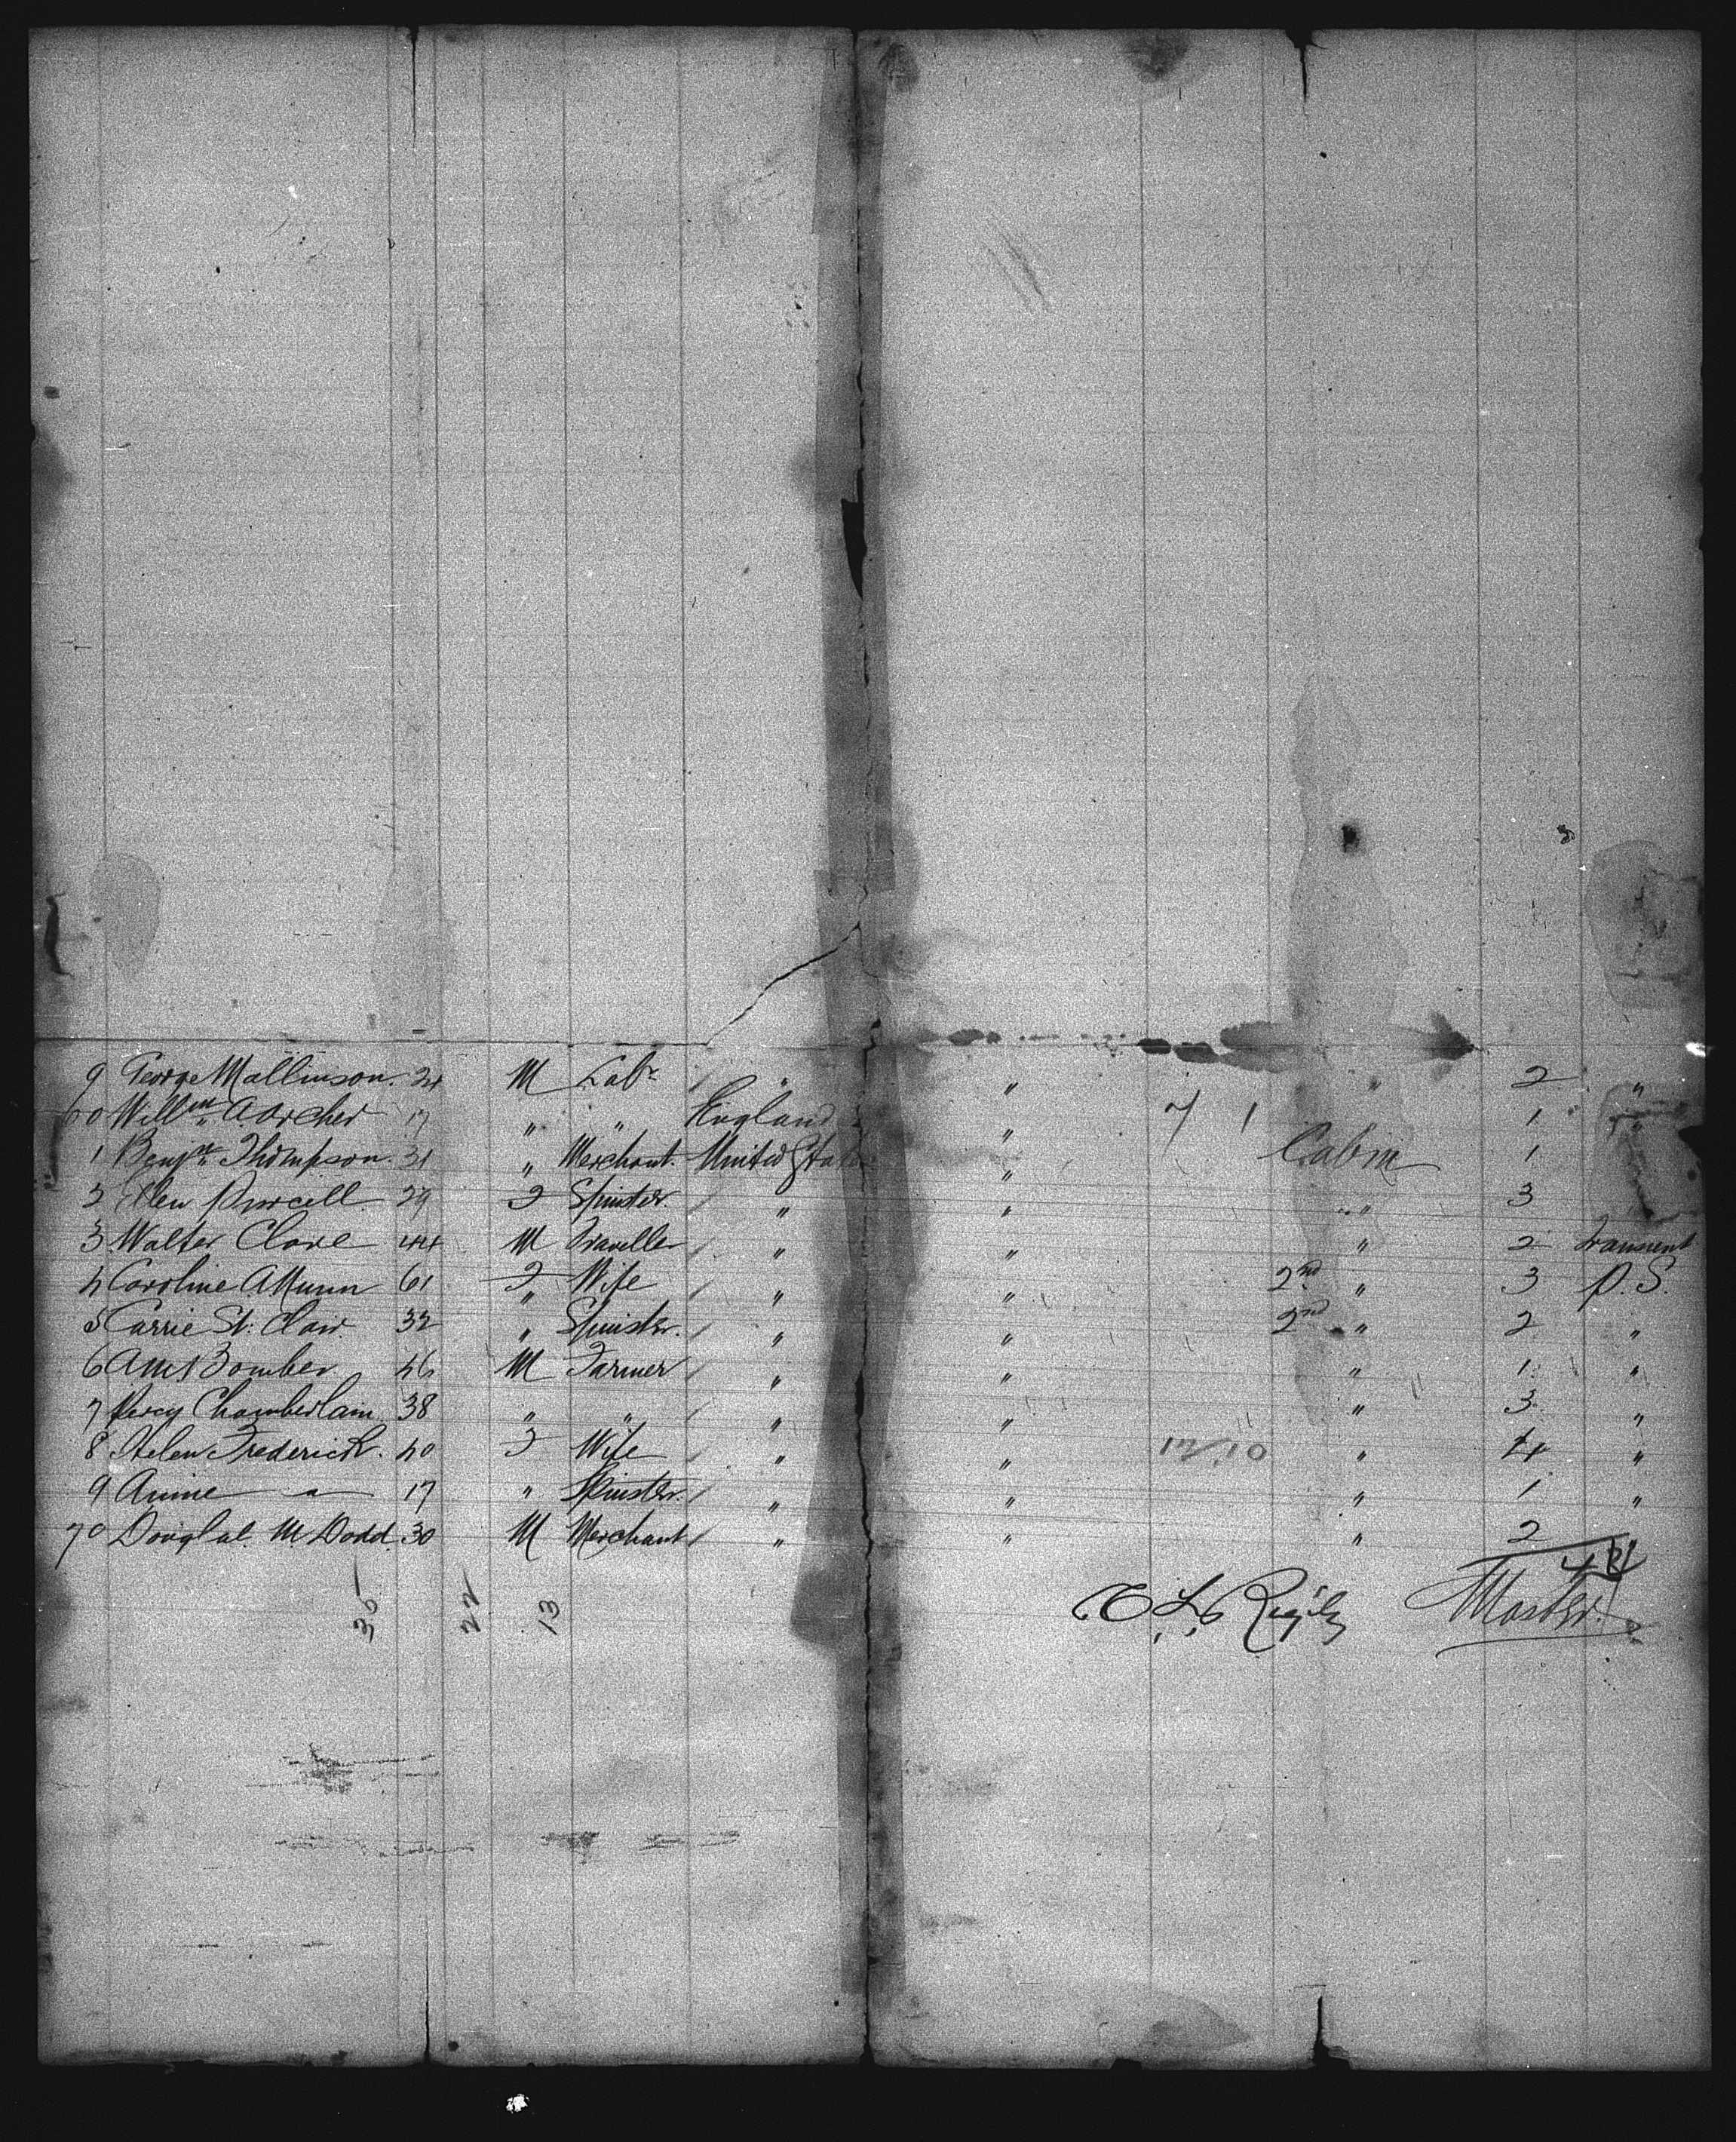 9 George Mallinson. 24 M Labr " " " 2 "
60 Willm A. Archer 17 " " England " 7 1 1 "
1 Benjn Thompson. 31 " Merchant. United States " Cabin 1
2 Ellen Purcell 29 F Spinster. " " " 3
3 Walter Clare 44 M Traveller " " " 2 Transient
4 Caroline A Munn 61 F " Wife " " 2nd " 3 P. S.
5 Carrie St. Clair. 32 " Spinster. " " 2nd " 2 "
6 46 M Farmer " " " 1 "
7 Percy Chamberlain 38 " " " " " 3 "
8 Helen Frederick. 40 F Wife " " 12/10 " 4 "
9 Annie " 17 " Spinster. " " " 1 "
70 M Dodd. 30 M Merchant " " " 2
35 22 13 Master.